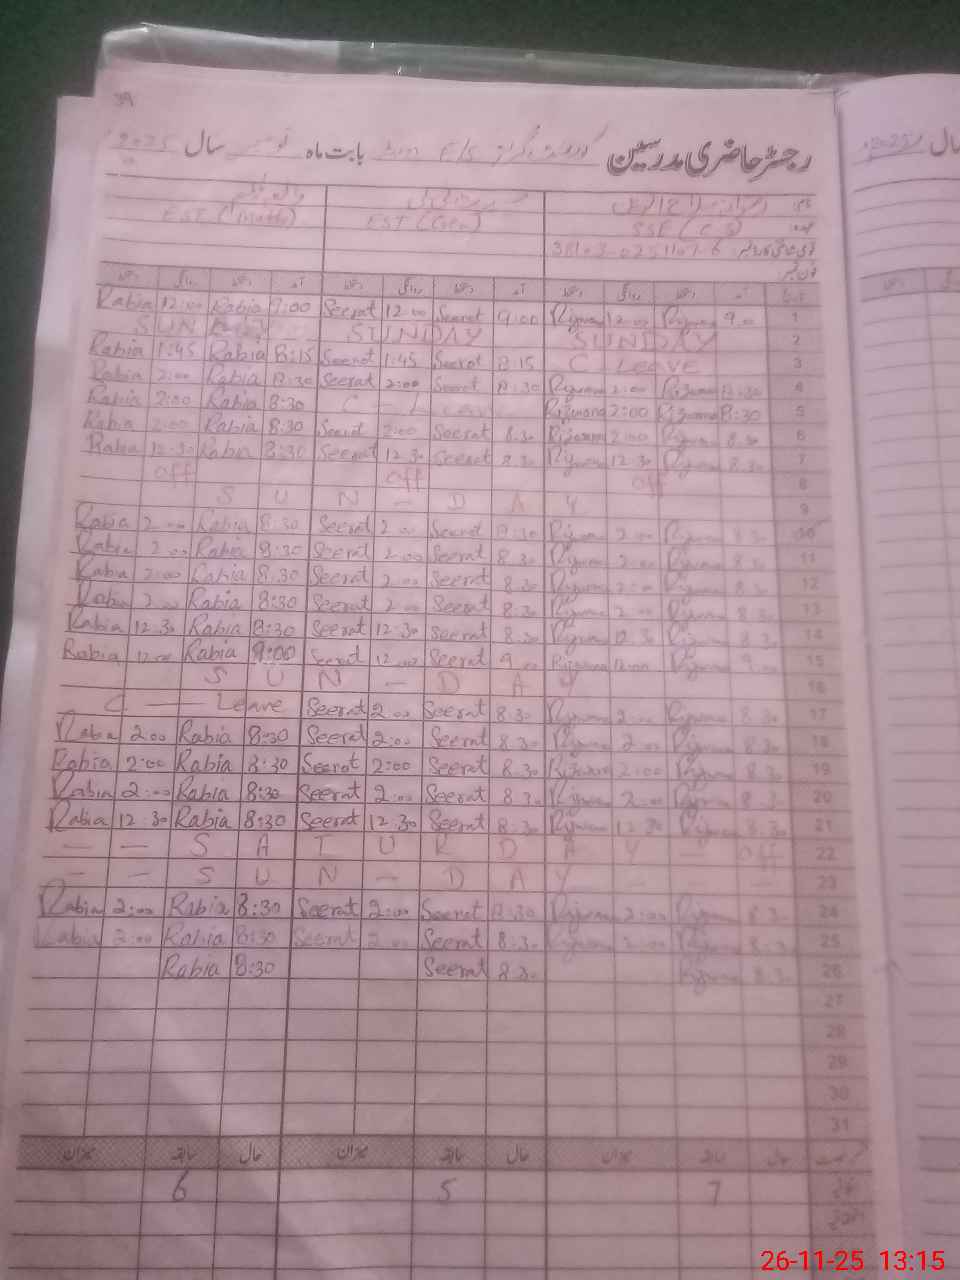 39
رجسٹر حاضری مدرسین گورنمنٹ گرلز E/S بابت ماہ نومبر سال 2025
EST (Math) EST (Gen) SSE (CS)
Rabia 12:00 Rabia 9:00 Seerat 12:00 Seerat 9:00 Rizwana 12:00 Rizwana 9:00 1
SUNDAY SUNDAY SUNDAY 2
Rabia 1:45 Rabia 8:15 Seerat 1:45 Seerat 8:15 C LEAVE 3
Rabia 2:00 Rabia 8:30 Seerat 2:00 Seerat 8:30 Rizwana 2:00 Rizwana 8:30 4
Rabia 2:00 Rabia 8:30 C - Leave Rizwana 2:00 Rizwana 8:30 5
Rabia 2:00 Rabia 8:30 Seerat 2:00 Seerat 8:30 Rizwana 2:00 Rizwana 8:30 6
Rabia 12:30 Rabia 8:30 Seerat 12:30 Seerat 8:30 Rizwana 12:30 Rizwana 8:30 7
off off off 8
S U N - D A Y 9
Rabia 2:00 Rabia 8:30 Seerat 2:00 Seerat 8:30 Rizwana 2:00 Rizwana 8:30 10
Rabia 2:00 Rabia 8:30 Seerat 2:00 Seerat 8:30 Rizwana 2:00 Rizwana 8:30 11
Rabia 2:00 Rabia 8:30 Seerat 2:00 Seerat 8:30 Rizwana 2:00 Rizwana 8:30 12
Rabia 2:00 Rabia 8:30 Seerat 2:00 Seerat 8:30 Rizwana 2:00 Rizwana 8:30 13
Rabia 12:30 Rabia 8:30 Seerat 12:30 Seerat 8:30 Rizwana 12:30 Rizwana 8:30 14
Rabia 12:00 Rabia 9:00 Seerat 12:00 Seerat 9:00 Rizwana 12:00 Rizwana 9:00 15
S U N - D A Y 16
C — Leave Seerat 2:00 Seerat 8:30 Rizwana 2:00 Rizwana 8:30 17
Rabia 2:00 Rabia 8:30 Seerat 2:00 Seerat 8:30 Rizwana 2:00 Rizwana 8:30 18
Rabia 2:00 Rabia 8:30 Seerat 2:00 Seerat 8:30 Rizwana 2:00 Rizwana 8:30 19
Rabia 2:00 Rabia 8:30 Seerat 2:00 Seerat 8:30 Rizwana 2:00 Rizwana 8:30 20
Rabia 12:30 Rabia 8:30 Seerat 12:30 Seerat 8:30 Rizwana 12:30 Rizwana 8:30 21
— — S A T U R D A Y — off 22
— — S U N - D A Y — — — 23
Rabia 2:00 Rabia 8:30 Seerat 2:00 Seerat 8:30 Rizwana 2:00 Rizwana 8:30 24
Rabia 2:00 Rabia 8:30 Seerat 2:00 Seerat 8:30 Rizwana 2:00 Rizwana 8:30 25
Rabia 8:30 Seerat 8:30 Rizwana 8:30 26
27
28
29
30
31
میزان سابقہ حال میزان سابقہ حال میزان سابقہ حال
6 5 7
26-11-25 13:15